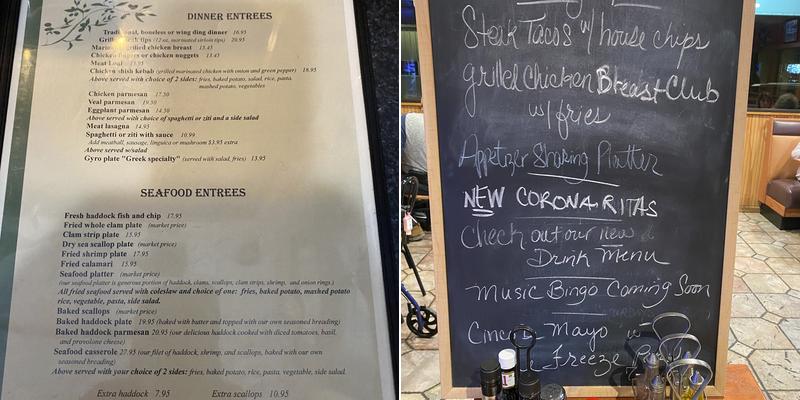 DINNER ENTREES
Traditional, boneless or wing ding dinner 16.95
Grilled tips (12 oz, marinated sirloin tips) 20.95
Marinated grilled chicken breast 13.45
Chicken fingers or chicken nuggets 13.45
Meat Loaf
Chicken shish kebab (grilled marinated chicken with onion and green pepper) 18.95
Above served with choice of 2 sides: fries, baked potato, salad, rice, pasta,
mashed potato, vegetables
Chicken parmesan 17.50
Veal parmesan 19.50
Eggplant parmesan 14.50
Above served with choice of spaghetti or ziti and a side salad
Meat lasagna 14.95
Spaghetti or ziti with sauce 10.99
Add meatball, sausage, linguica or mushroom $3.95 extra
Above served w/salad
Gyro plate "Greek specialty" (served with salad, fries) 13.95
SEAFOOD ENTREES
Fresh haddock fish and chip 17.95
Fried whole clam plate (market price)
Clam strip plate 15.95
Dry sea scallop plate (market price)
Fried shrimp plate 17.95
Fried calamari 15.95
Seafood platter (market price)
(our seafood platter is generous portion of haddock, clams, scallops, clam strips, shrimp, and onion rings.)
All fried seafood served with coleslaw and choice of one: fries, baked potato, mashed potato
rice, vegetable, pasta, side salad.
Baked scallops (market price)
Baked haddock plate 19.95 (baked with butter and topped with our own seasoned breading)
Baked haddock parmesan 20.95 (our delicious haddock cooked with diced tomatoes, basil,
and provolone cheese)
Seafood casserole 27.95 (our filet of haddock, shrimp, and scallops, baked with our own
seasoned breading)
Above served with your choice of 2 sides: fries, baked potato, rice, pasta, vegetable, side salad.
Extra haddock 7.95 Extra scallops 10.95
Steak Tacos w/ house chips
grilled Chicken Breast Club
w/ fries
Appetzer Sharing Platter
NEW CORONA-RITAS
Check out our new
Drink Menu
Music Bingo Coming Soon
Mayo
Freeze